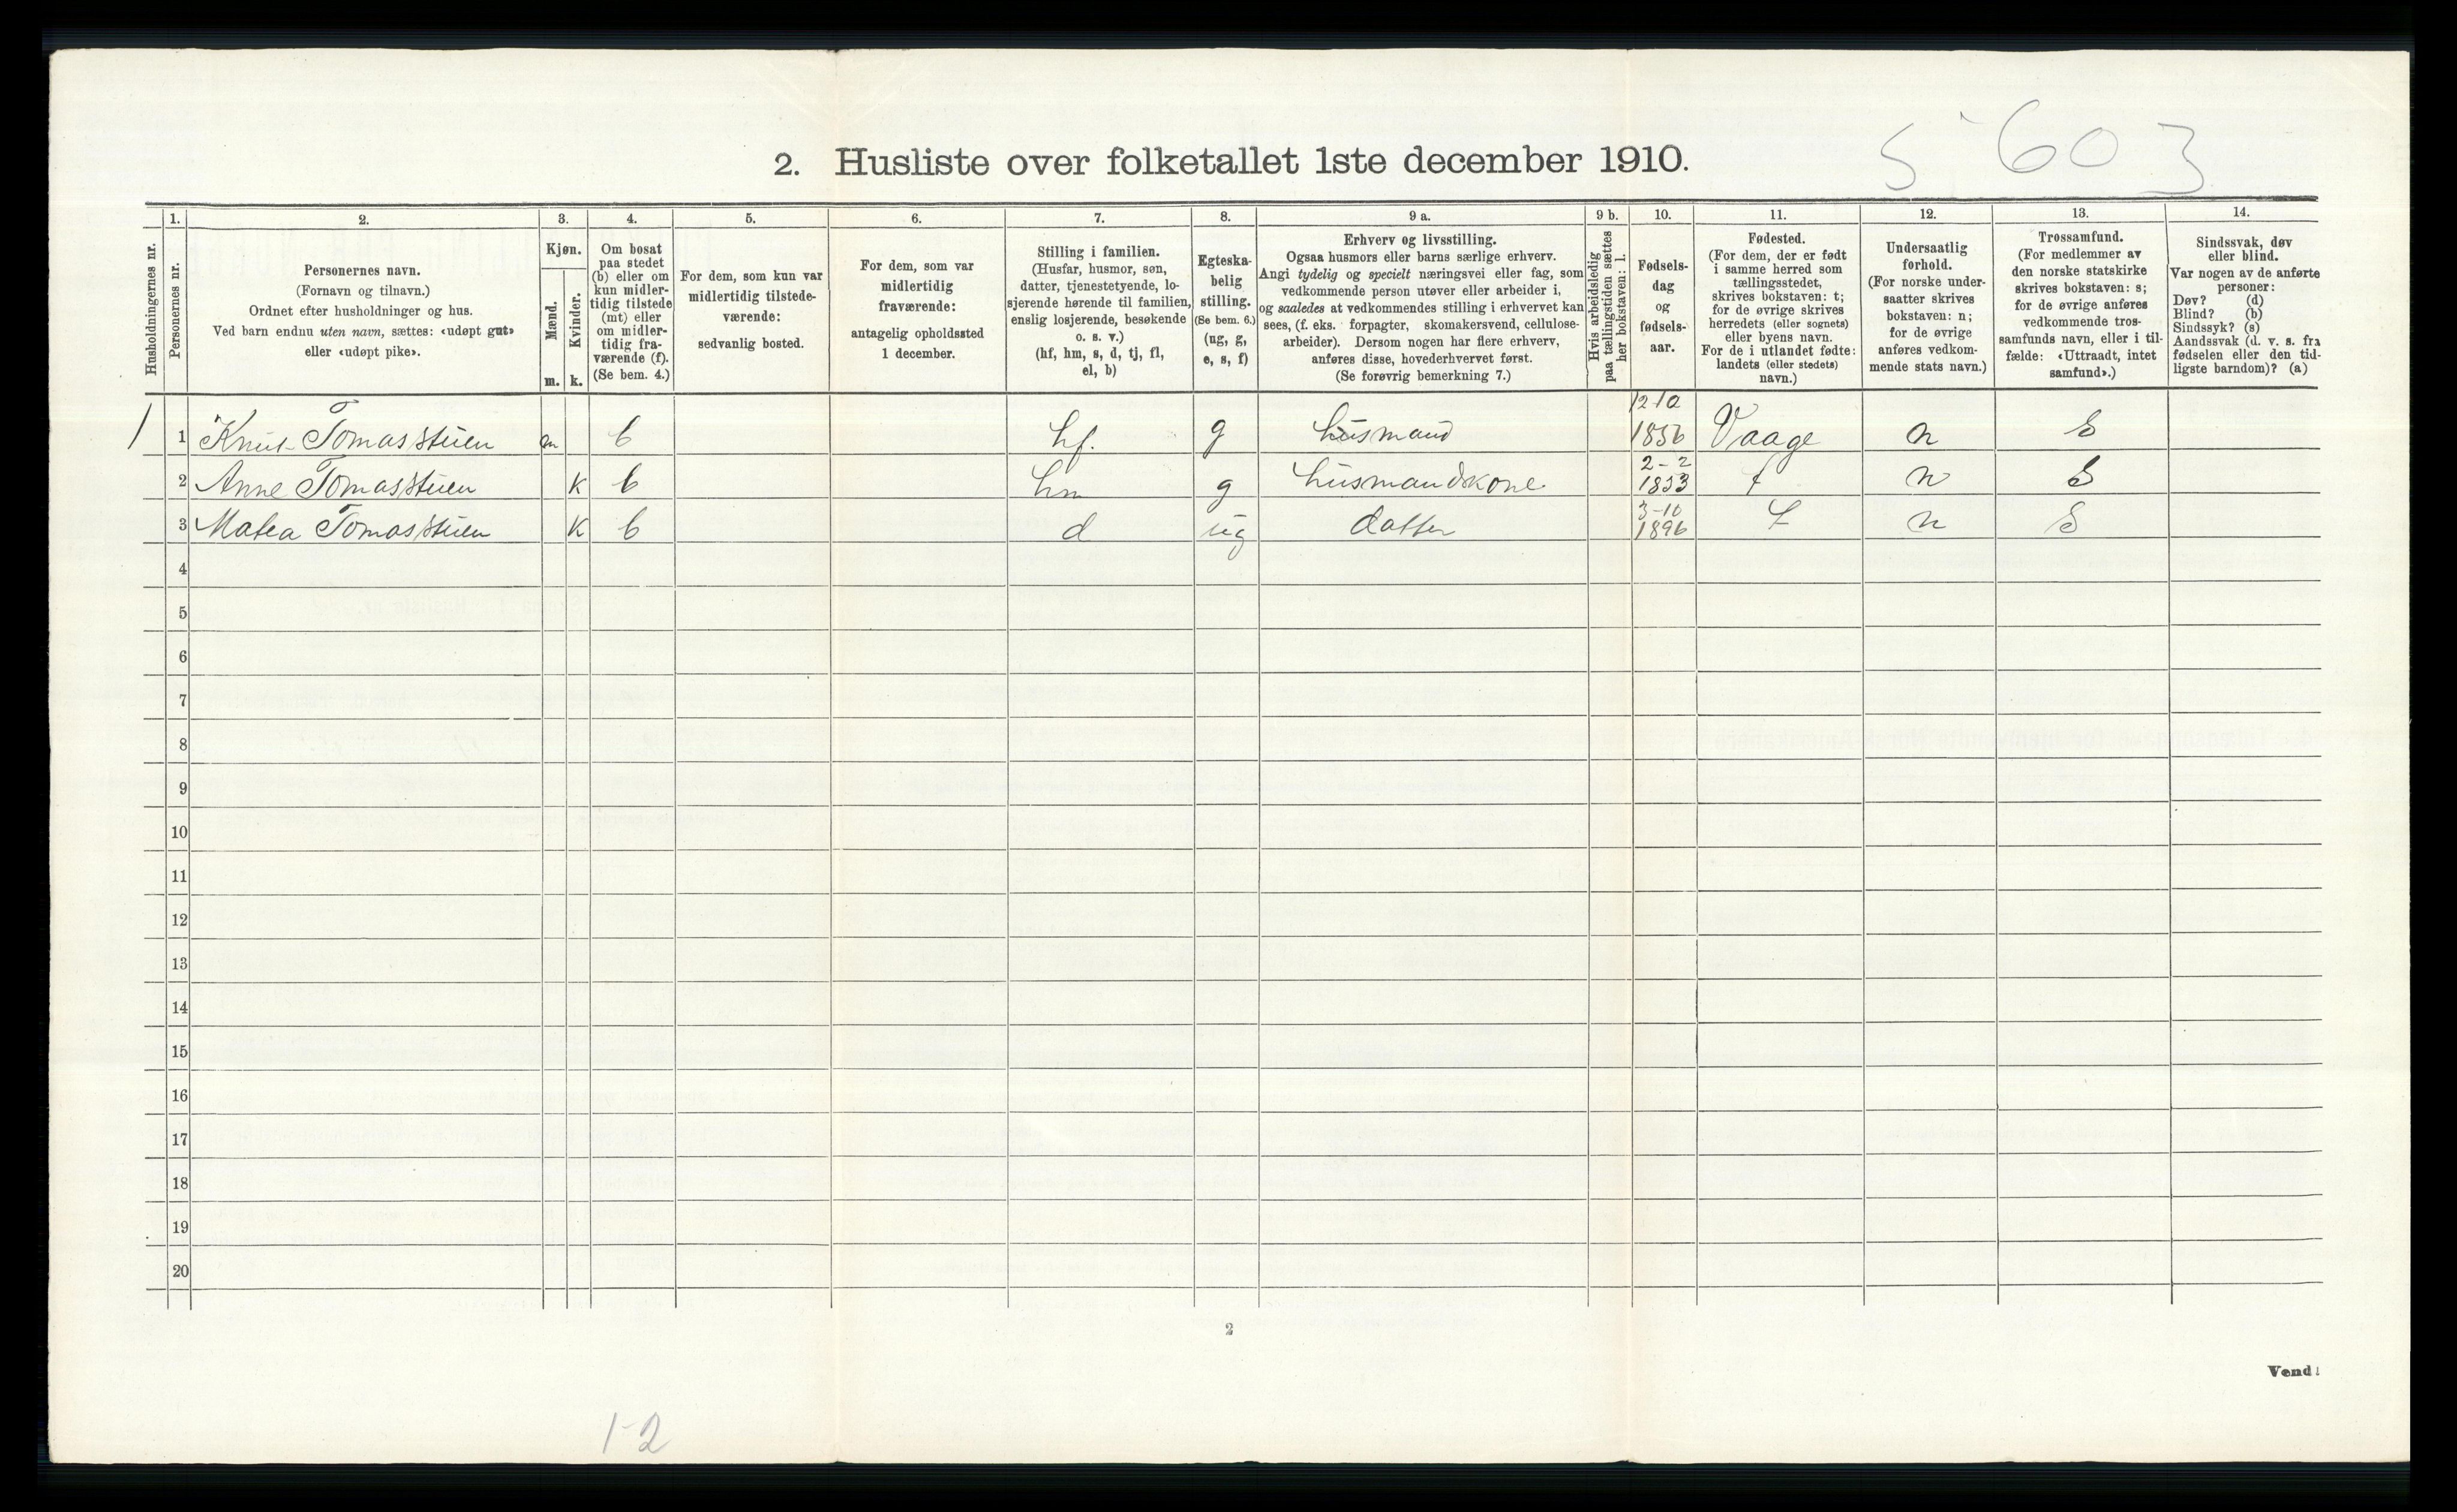 5 603
2. Husliste over folketallet 1ste december 1910.
Husholdningernes nr.
1.
Personernes nr.
2.
Personernes navn.
(Fornavn og tilnavn.)
Ordnet efter husholdninger og hus.
Ved barn endnu uten navn, sættes: «udøpt gut»
eller «udøpt pike».
3.
Kjøn.
Mænd.
m.
Kvinder.
k.
4.
Om bosat
paa stedet
(b) eller om
kun midler-
tidig tilstede
(mt) eller
om midler-
tidig fra-
værende (f).
(Se bem. 4.)
5.
For dem, som kun var
midlertidig tilstede-
værende:
sedvanlig bosted.
6.
For dem, som var
midlertidig
fraværende:
antagelig opholdssted
1 december.
7.
Stilling i familien.
(Husfar, husmor, søn,
datter, tjenestetyende, lo-
sjerende hørende til familien,
enslig losjerende, besøkende
o. s. v.)
(hf, hm, s, d, tj, fl,
el, b)
8.
Egteska-
belig
stilling.
(Se bem. 6.)
(ug, g,
e, s, f)
9 a.
Erhverv og livsstilling.
Ogsaa husmors eller barns særlige erhverv.
Angi tydelig og specielt næringsvei eller fag, som
vedkommende person utøver eller arbeider i,
og saaledes at vedkommendes stilling i erhvervet kan
sees, (f. eks. forpagter, skomakersvend, cellulose-
arbeider). Dersom nogen har flere erhverv,
anføres disse, hovederhvervet først.
(Se forøvrig bemerkning 7.)
9 b.
Hvis arbeidsledig
paa tællingstiden sættes
her bokstaven: l.
10.
Fødsels-
dag
og
fødsels-
aar.
11.
Fødested.
(For dem, der er født
i samme herred som
tællingsstedet,
skrives bokstaven: t;
for de øvrige skrives
herredets (eller sognets)
eller byens navn.
For de i utlandet fødte:
landets (eller stedets)
navn.)
12.
Undersaatlig
forhold.
(For norske under-
saatter skrives
bokstaven: n;
for de øvrige
anføres vedkom-
mende stats navn.)
13.
Trossamfund.
(For medlemmer av
den norske statskirke
skrives bokstaven: s;
for de øvrige anføres
vedkommende tros-
samfunds navn, eller i til-
fælde: «Uttraadt, intet
samfund».)
14.
Sindssvak, døv
eller blind.
Var nogen av de anførte
personer:
Døv? (d)
Blind? (b)
Sindssyk? (s)
Aandssvak (d. v. s. fra
fødselen eller den tid-
ligste barndom)? (a)
1 1 Knut Tomasstuen m b hf. g husmand 12-10 1856 Vaage n S
2 Anne Tomasstuen k b hm g husmandskone 2-2 1853 t n S
3 Matea Tomasstuen k b d ug datter 3-10 1896 t n S
4
5
6
7
8
9
10
11
12
13
14
15
16
17
18
19
20
2
Vend!
1-2